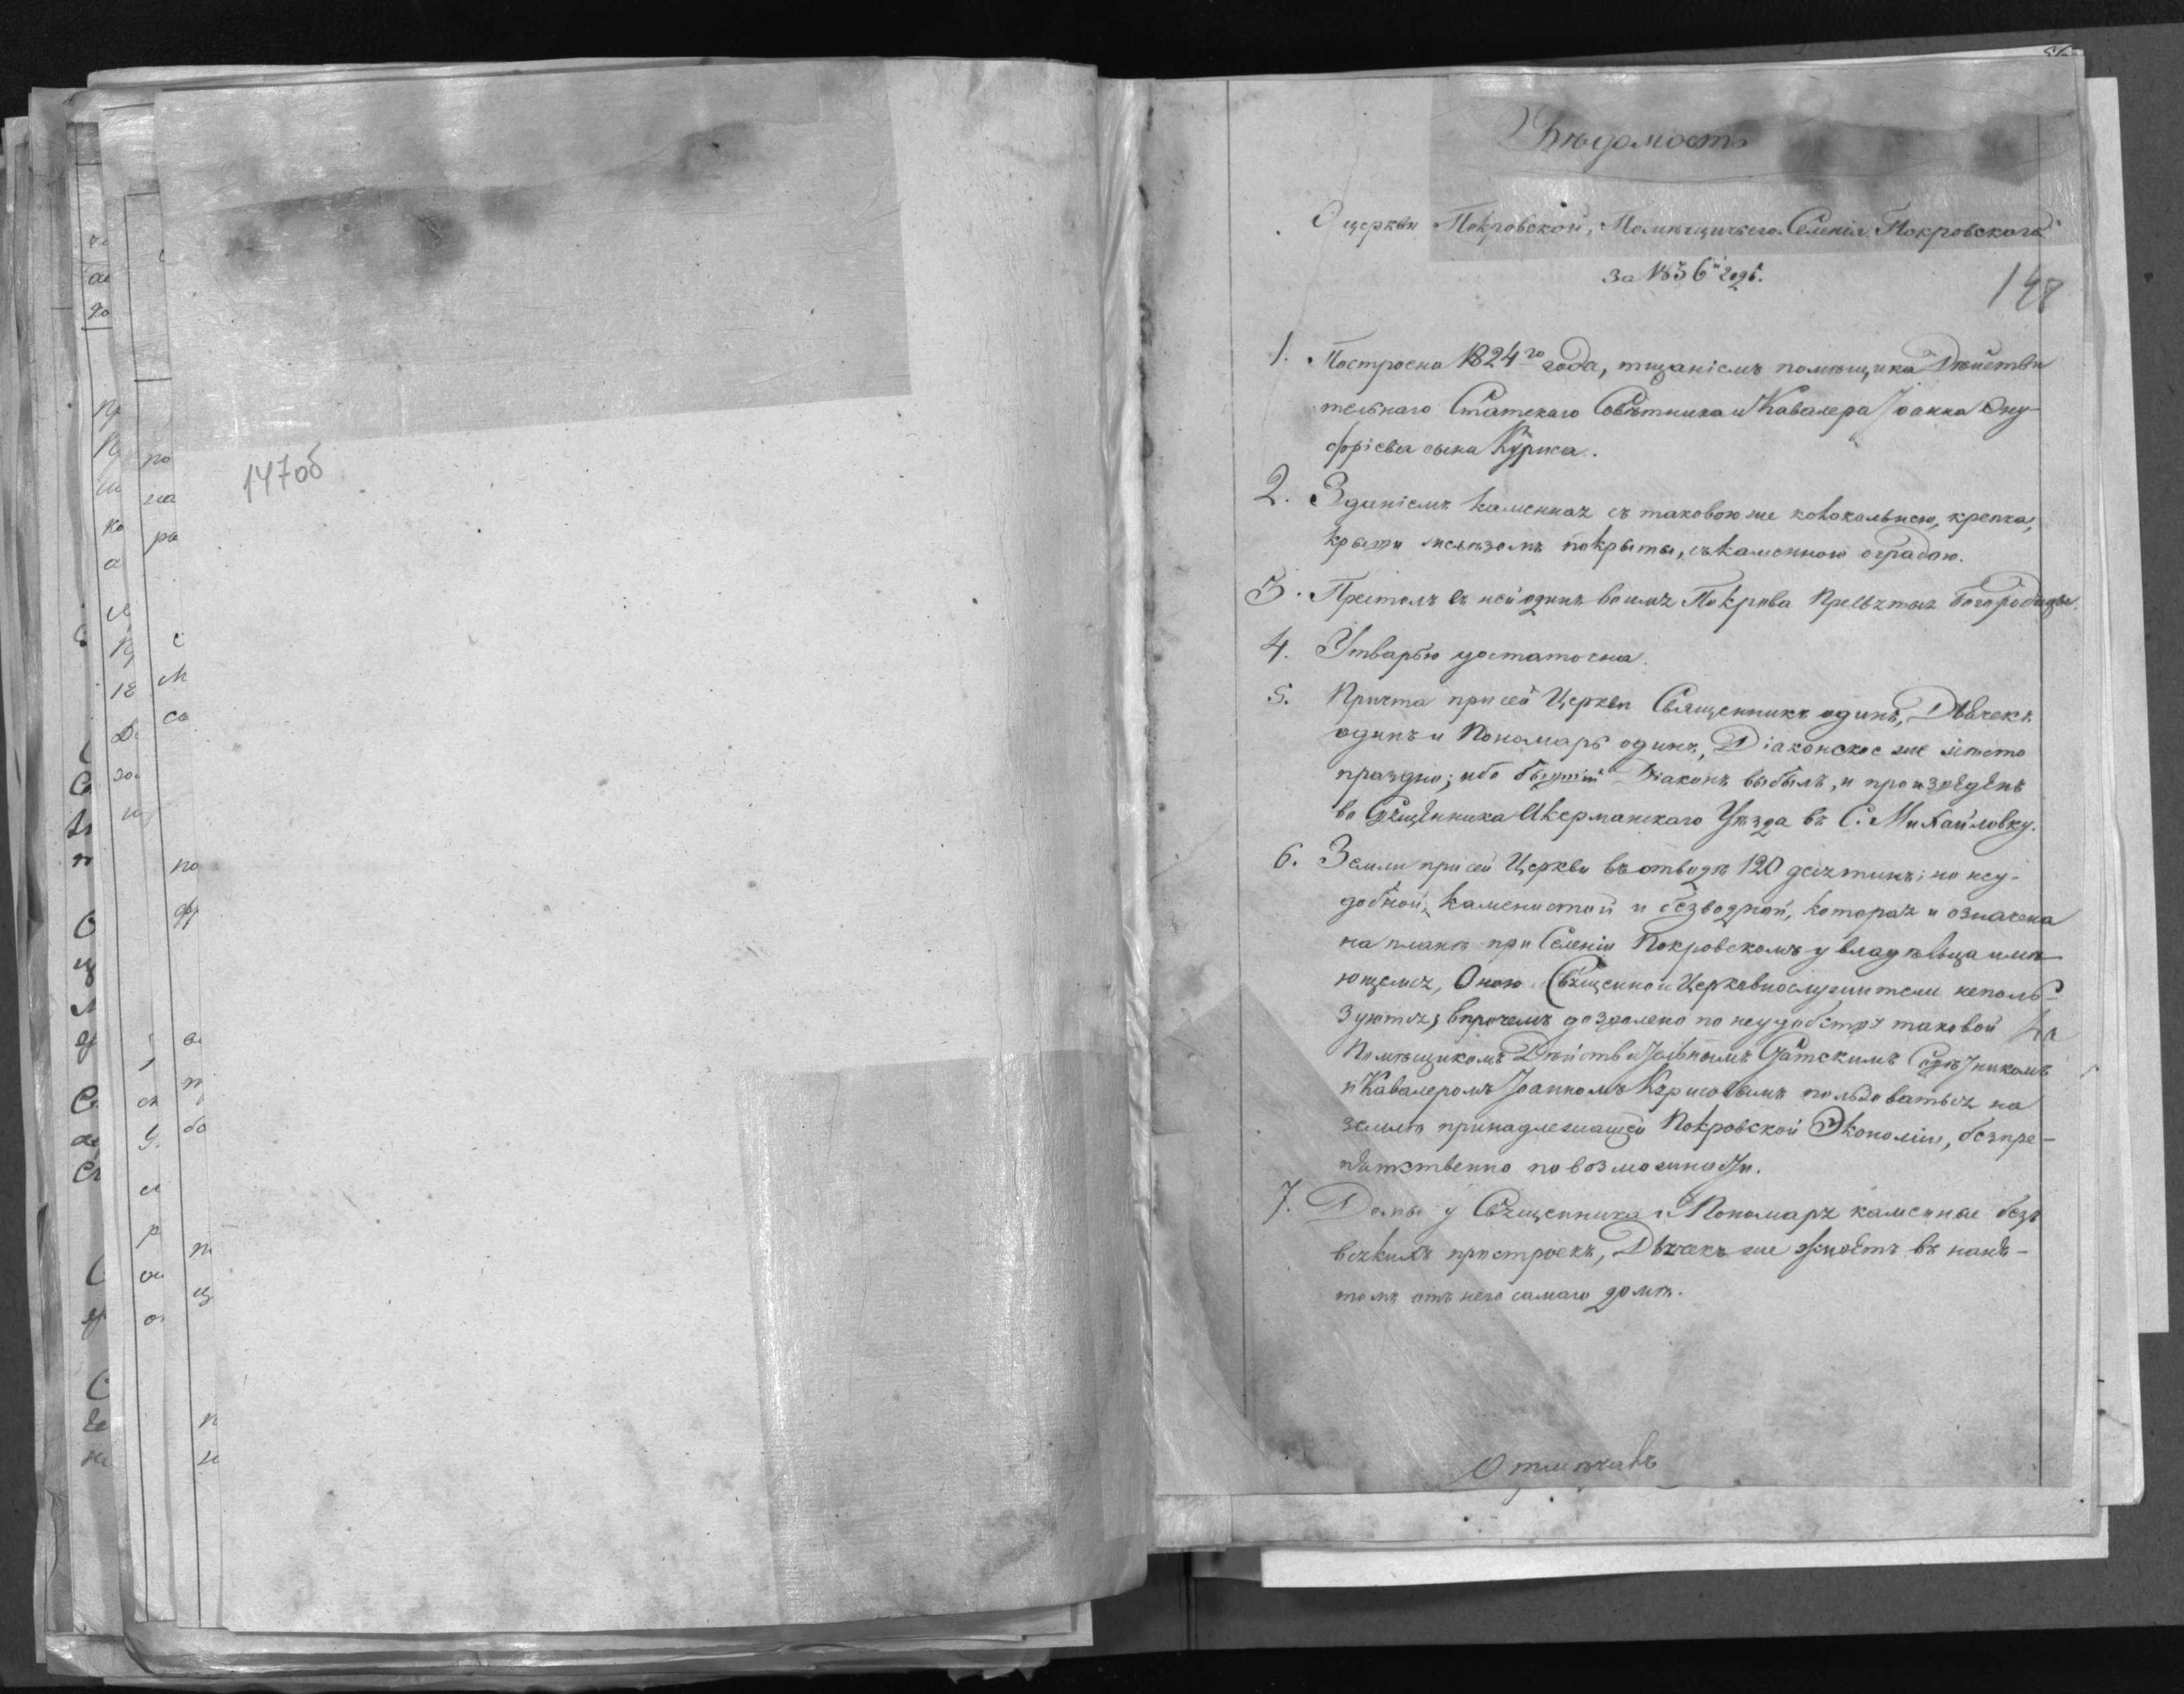 147об
Вѣдомость
О церкви Покровской, Помѣщичьего Селенія Покровскаго
за 1836й годъ.
148
1. Построена 1824го года, тщаніемъ помѣщика Дѣйстви
тельнаго Статскаго Совѣтника и Кавалера Іоанна Ону-
фріева сына Куриса.
2. Зданіемъ каменная съ таковою же колокольнею, крепка,
крыши желѣзомъ покрыты, съ каменною оградою.
3. Престолъ въ ней одинъ во имя Покрова Пресвятыя Богородицы.
4. Утварью достаточна.
5. Причта при сей Церкви Священникъ одинъ, Дьячекъ
одинъ и Пономарь одинъ, Діаконское же мѣсто
праздно; ибо бывшій Діаконъ выбылъ, и произведенъ
во Священника Акерманскаго Уѣзда въ С. Михайловку.
6. Земли при сей Церкви въ отводѣ 120 десятинъ; но неу-
добной, каменистой и безводной, которая и означена
на планѣ при Селеніи Покровскомъ у владѣльца имѣ
ющемся, Оною Священно и Церковнослужители неполь-
зуются; впрочемъ дозволено по неудобству таковой
Помѣщикомъ Дѣйствительнымъ Статскимъ Совѣтникомъ
и Кавалеромъ Іоанномъ Курисовымъ пользоваться на
землѣ принадлежащей Покровской Экономіи, безпре-
пятственно по возможности.
7. Домы у Священника и Пономаря каменные безъ
всякихъ пристроекъ, Дьячекъ же живетъ въ наня-
томъ отъ него самаго домѣ.